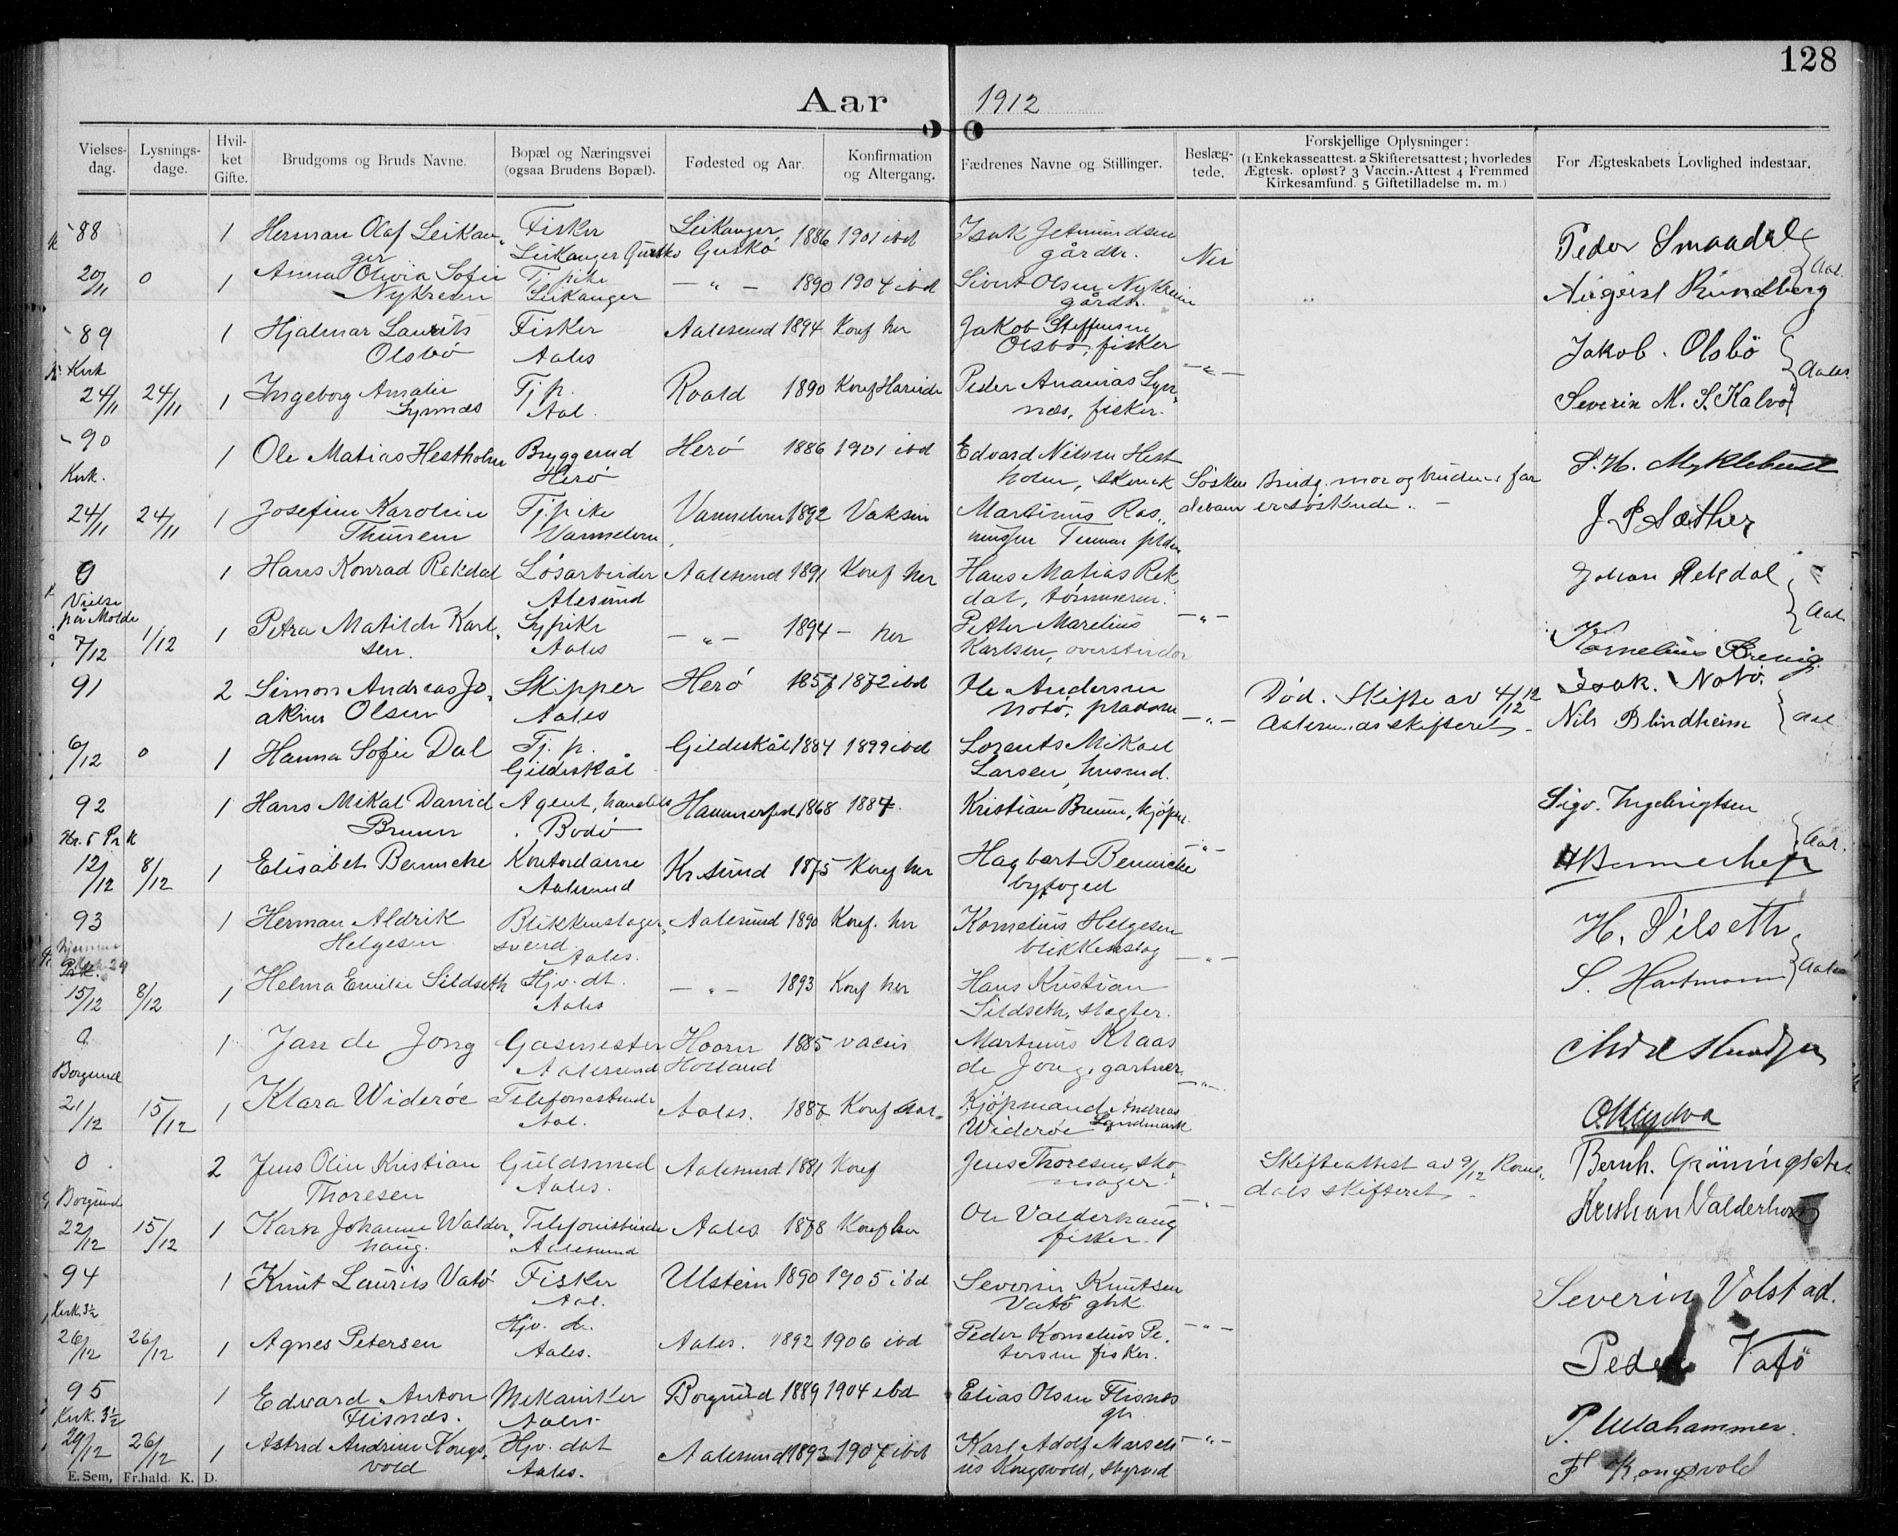 128
Aar 1912
Vielses-dag. Lysnings-dage. Hvil-ket Gifte. Brudgoms og Bruds Navne. Bopæl og Næringsvei (ogsaa Brudens Bopæl). Fødested og Aar. Konfirmation og Altergang. Fædrenes Navne og Stillinger. Beslæg-tede. Forskjellige Oplysninger: (1 Enkekasseattest. 2 Skifteretsattest; hvorledes Ægtesk. opløst? 3 Vaccin.-Attest 4 Fremmed Kirkesamfund. 5 Giftetilladelse m. m.) For Ægteskabets Lovlighed indestaar.
88 1 Herman Olaf Leikan- Fisker Leikanger 1886 1901 ibd Isak Jetmundsen Peder Smaadal
ger Leikanger Gurskö Gurskö gårdbr. Nei Aal.
20/11 0 1 Anna Olivia Sofie Tj.pike — " — 1890 1904 ibd Sivert Olsen Nykreim August Rundberg
Nykreim Leikanger gårdbr. "
89 1 Hjalmar Laurits Fisker Aalesund 1894 Konf her Jakob Steffensen Jakob. Olsbö
Olsbö Aales Olsbö, fisker
Kirk — " — Aales.
24/11 24/11 1 Ingeborg Amalie Tj p. Roald 1890 Konf Hareide Peder Ananias Syn- Severin M. S. Kalvö
Synnæs Aal. næs, fisker.
90 1 Ole Matias Hestholm Bryggemd Herö 1886 1901 ibd Edvard Nilsen Hest- S. H. Myklebust
Kirk. Herö holm, Söskenbarn Brudg. mor og brudens far er söskende.
24/11 24/11 1 Josefine Karoline Tj.pike Vannelven 1892 Vaksin Martinus Ras- J P Sæther
Vannelven
0 1 Hans Konrad Rekdal Løsarbeider Aalesund 1891 Konf her Hans Matias Rek- Johan Rekdal
Vielse Alesund dal, tömmerm.
på Molde — " — Aal.
7/12 1/12 1 Petra Matilde Karl- Sypike — " — 1894 — her Petter Marelius Kornelius
sen Aales Karlsen,
91 2 Simon Andreas Jo- Skipper Herö 1857 1872 ibd Ole Andersen Död. Skifte av 4/12 12 Isak. Notö.
akim Olsen Aales Notö, pladsm — " — Aalesunds skifteret. Nils Blindheim Aal
6/12 0 1 Hanna Sofie Dal Tj. p. Gildeskål 1884 1899 ibd Lorents Mikael
Gildeskål Larsen, husmd.
92 1 Hans Mikal David Agent, handels Hammerfest 1868 1884. Kristian Bruun, kjöpm. Sigv. Ingebrigtsen
Bruun Bodö
— " — Aal.
12/12 8/12 1 Elisabet Bennecke Kontordame Kr sund 1875 Konf her Hagbart Bennecke
Aalesund byfoged
93 1 Herman Aldrik Blikkenslager- Aalesund 1890 Konf. her Kornelius Helgesen H. Silseth
Helgesen svend. Aales. blikkenslag — " — Aales
15/12 8/12 1 Helma Emilie Sildseth Hjv. dt. — " — 1893 Konf her Hans Kristian S. Hartmann
Aales Sildseth, slagter.
0 1 Jan de Jong Gasmester Hoorn 1885 vacin Martinus Klaas
Borgund Aalesund Holland de Jong, gartner — " —
21/12 15/12 1 Klara Wideröe Telefonistinde Aales. 1887 Konf Aal. Kjöpmand Andreas
Aal. Wideröe Landmark
0 2 Jens Olin Kristian Guldsmed Aalesund 1881 Konf Jens Thoresen, sko- Skifteattest av 9/12 Roms-
Thoresen Aales. mager. dals skifteret. Bernh. Gröningsæter
Borgund — " —
22/12 15/12 1 Karn Johanne Walder- Telefonistinde Aales 1878 Konf her Ole Valderhaug Kristian Valderhaug
haug. Aalesund fisker.
94 1 Knut Laurits Vatö Fisker Ulstein 1890 1905 ibd Severin Knutsen Severin Volstad.
Kirk. 3½ Aal. Vatö gbk.
26/12 26/12 1 Agnes Petersen Hjv. d. Aales. 1892 1906 ibd Peder Kornelius Pe- — " — Peder Vatö
Aales. tersen fisker.
95 1 Edvard Anton Mekaniker Borgund 1889 1904 ibd Elias Olsen Flisnes P. Ullahammer.
Kirk. 3½ Flisnæs. Aales. gbr.
29/12 26/12 1 Astrid Andrine Kongs- Hjv. dat Aalesund 1893 1907 ibd Karl Adolf Marseli- — " — F Kongsvold
vold Aales. us Kongsvold, styrmd
E. Sem, Fr.hald. K. D.